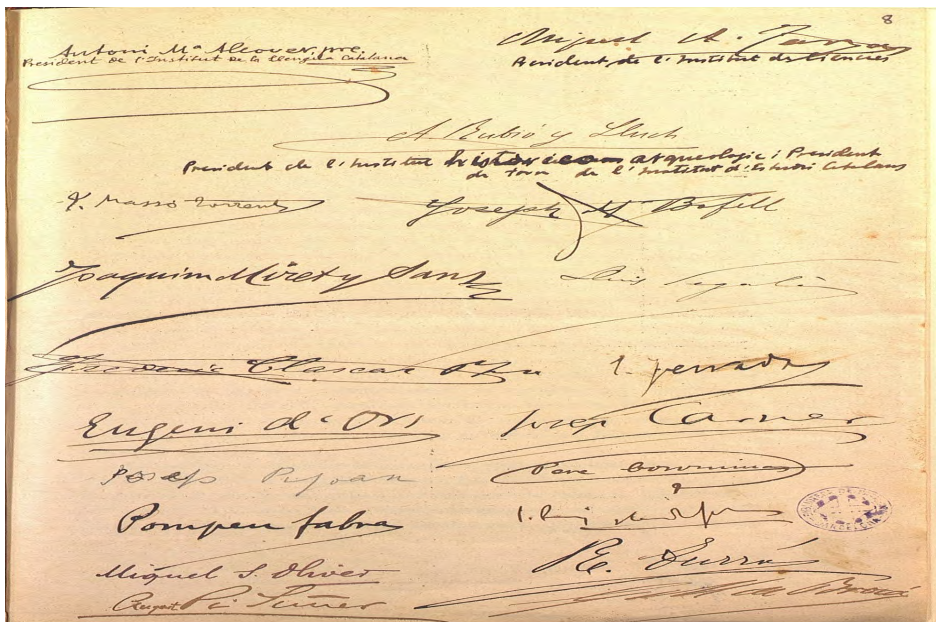 8
Antoni Mª Alcover, pre.
President de l'Institut de la Llengua Catalana
Miquel A.
President de l'Institut de Ciencies
A Rubió y Lluch
President de l'Institut historic arqueologic i President
de torn de l'Institut d'Estudis Catalans
J. Massó Torrents
Joseph M Bofill
Joaquim Miret y Sans
Lluis Segalá
Frederic Clascar
Eugeni d'Ors
Josep Carner
Josep Pijoan
Pere Coromines
Pompeu Fabra
Miquel S. Oliver
R. Durán
August Pi Suñer